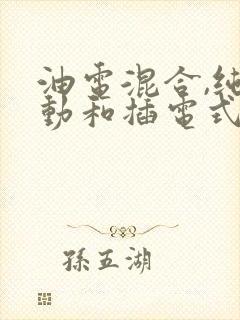 油電混合,純
動和插電式
孫五湖